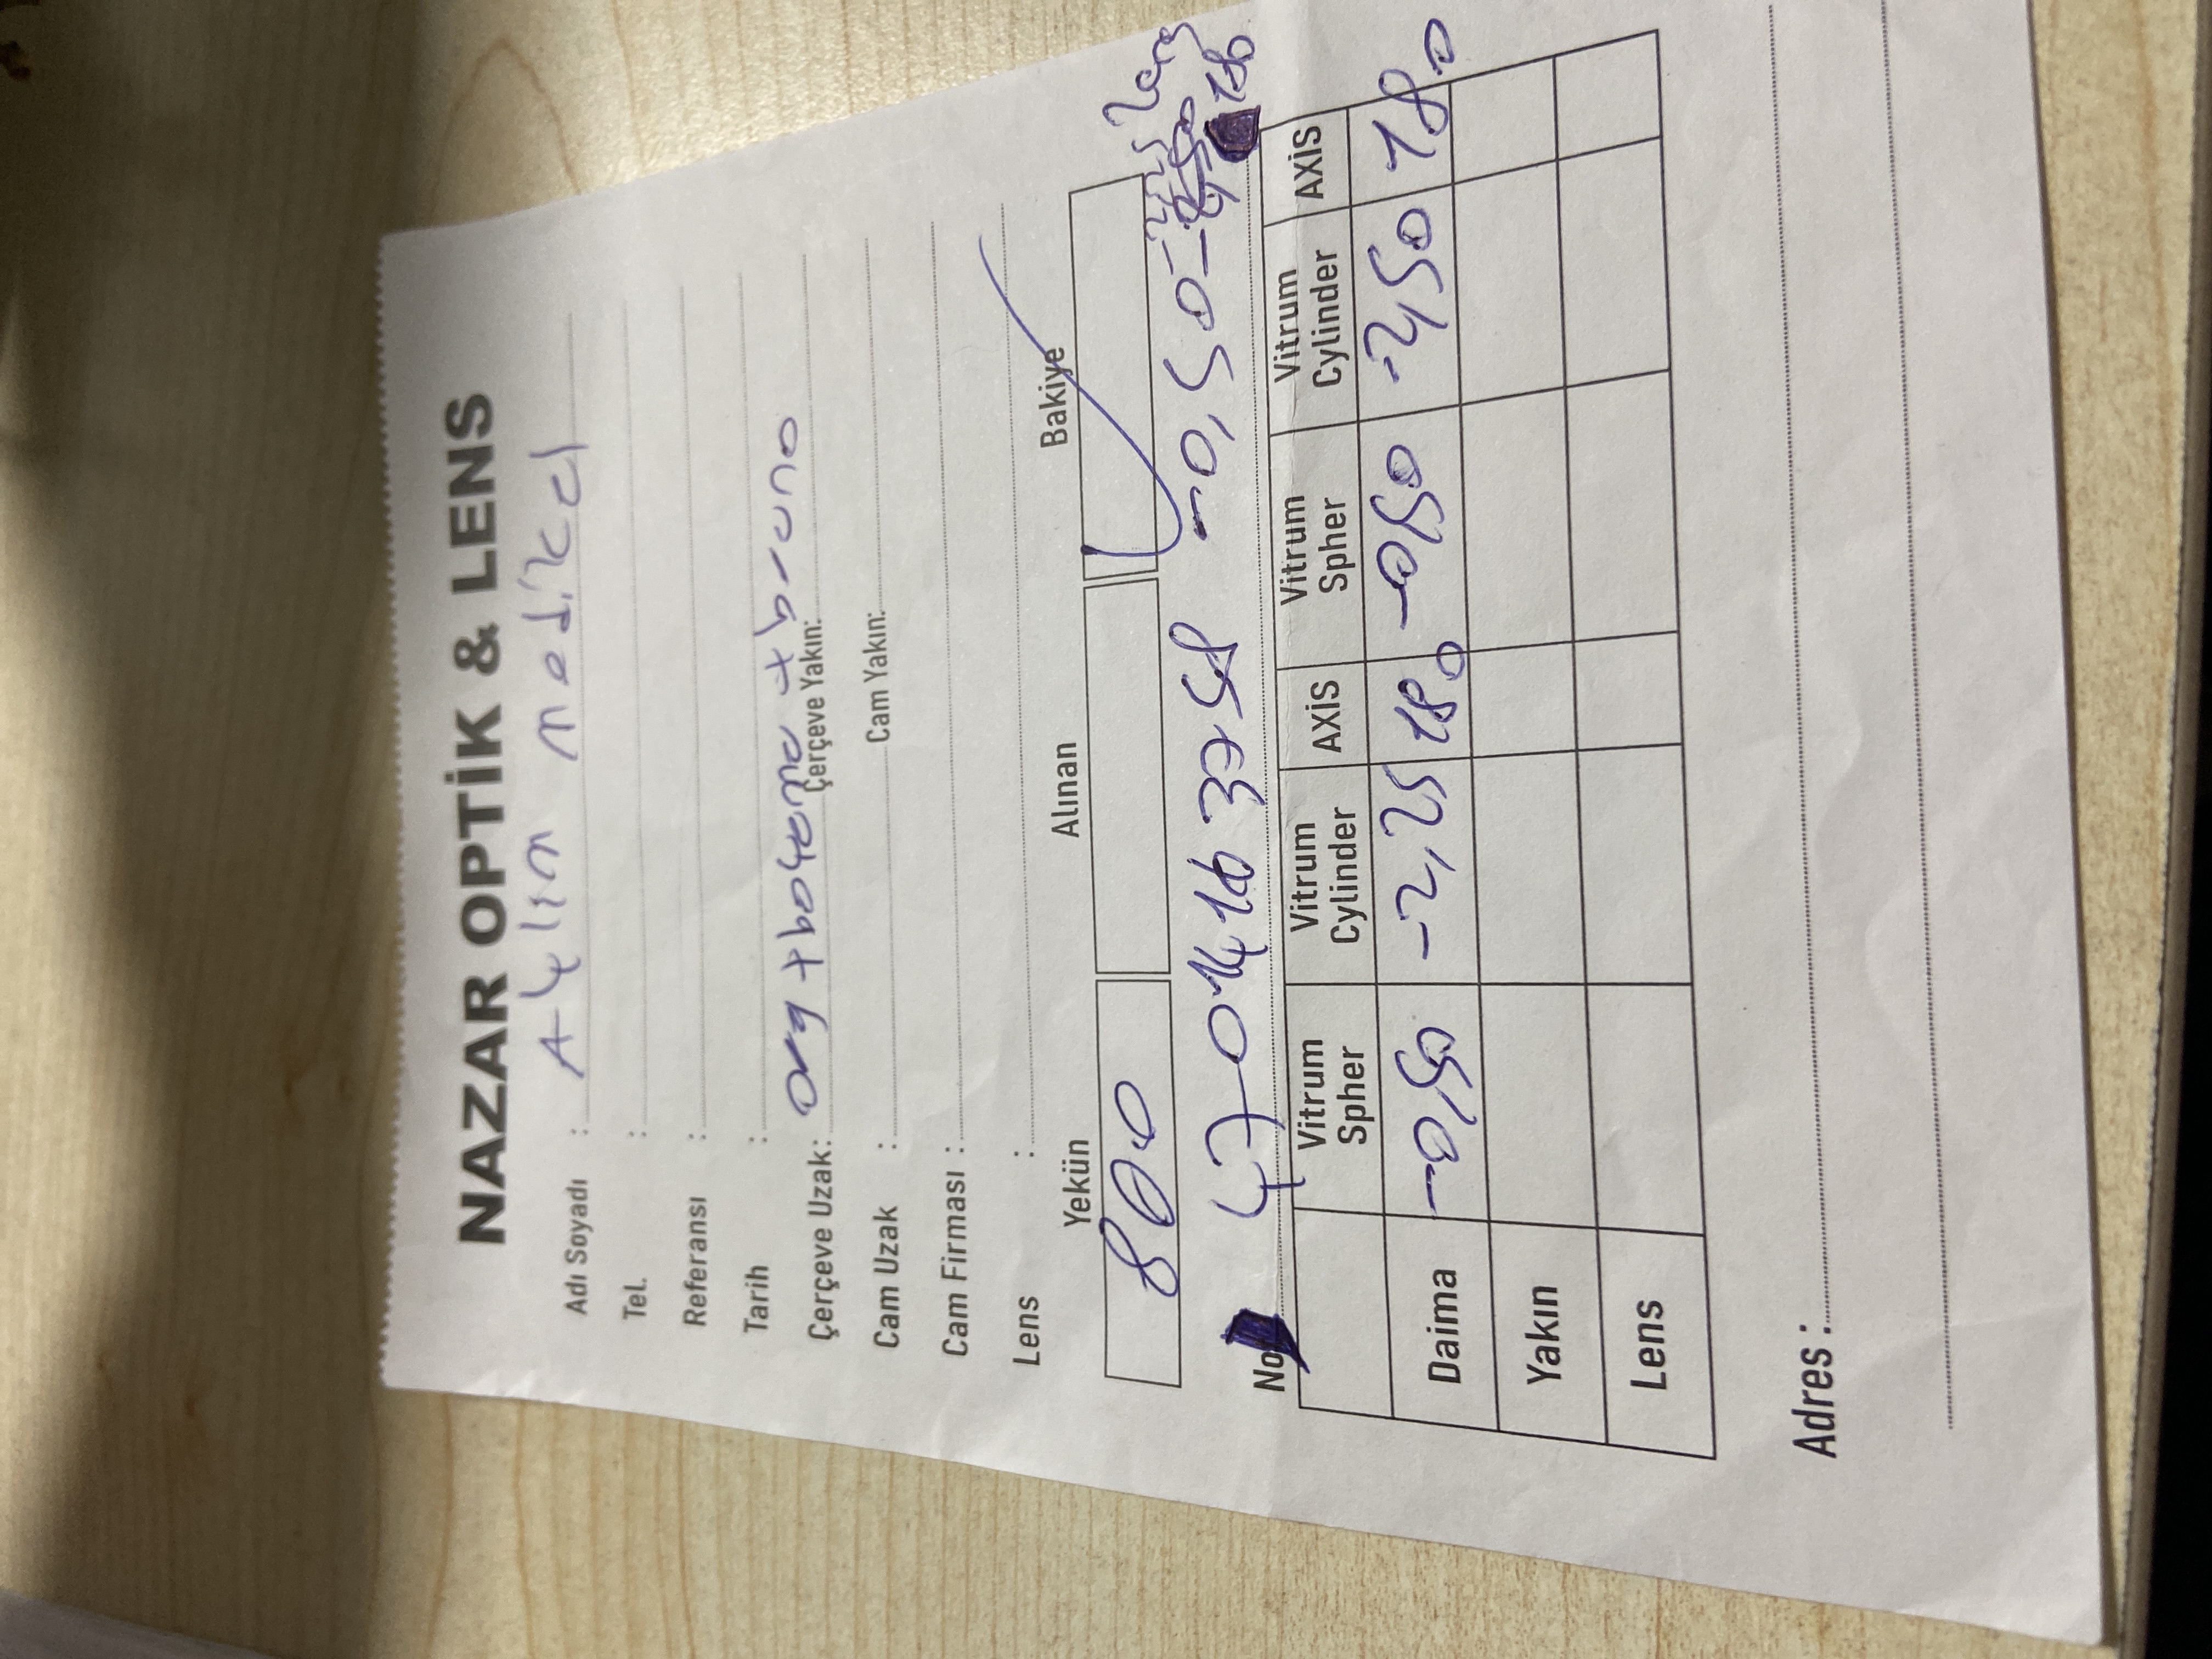 NAZAR OPTİK & LENS
Adı Soyadı : Aylin medikal
Tel. :
Referansı :
Tarih :
Çerçeve Uzak: org + boyama + bruno Çerçeve Yakın:
Cam Uzak : Cam Yakın:
Cam Firması :
Lens :
Yekün Alınan Bakiye
800
-2,25
No 470 3758 -0,50 180
Vitrum Spher Vitrum Cylinder AXİS Vitrum Spher Vitrum Cylinder AXİS
Daima -0,50 -2,25 180 -0,50 -2,50 180
Yakın
Lens
Adres :